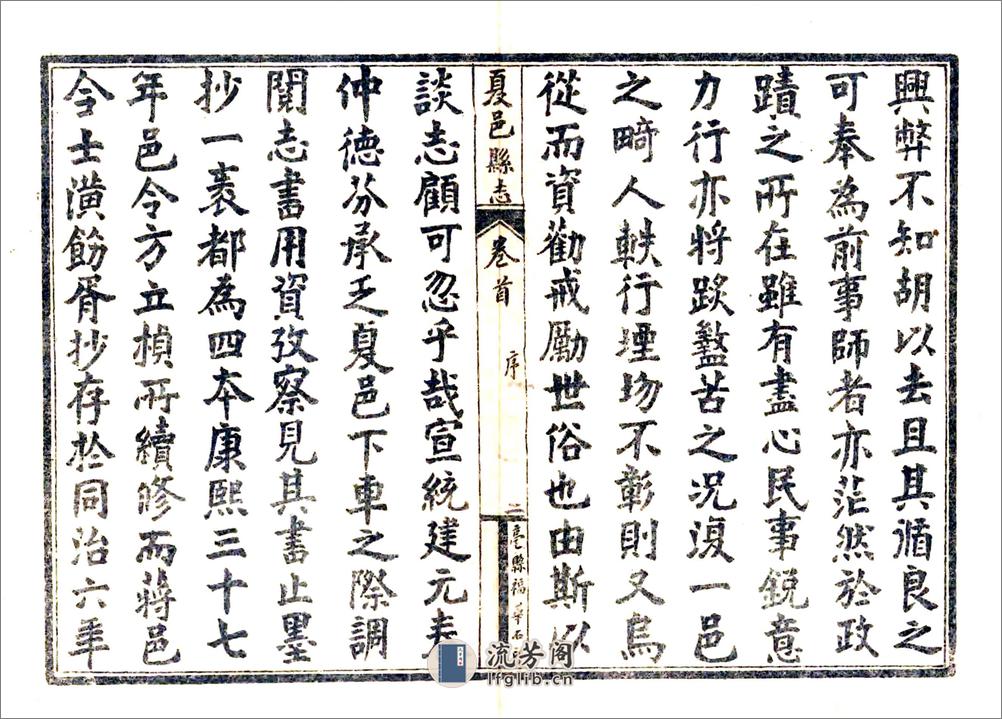 興弊不知胡以去且其循良之
可奉為前事師者亦茫然於政
蹟之所在雖有盡心民事銳意
力行亦將踐盩苦之況復一邑
之畸人軼行堙坊不彰則又烏
從而資勸戒勵世俗也由斯以
夏邑縣志
卷首
序
二
亳縣福華石
談志顧可忽乎哉宣統建元春
仲德芬承乏夏邑下車之際調
閱志書用資攷察見其書止墨
抄一袠都為四本康熙三十七
年邑令方立楨所續修而蔣邑
令士潢飭胥抄存於同治六年
流芳阁
lfglib.cn